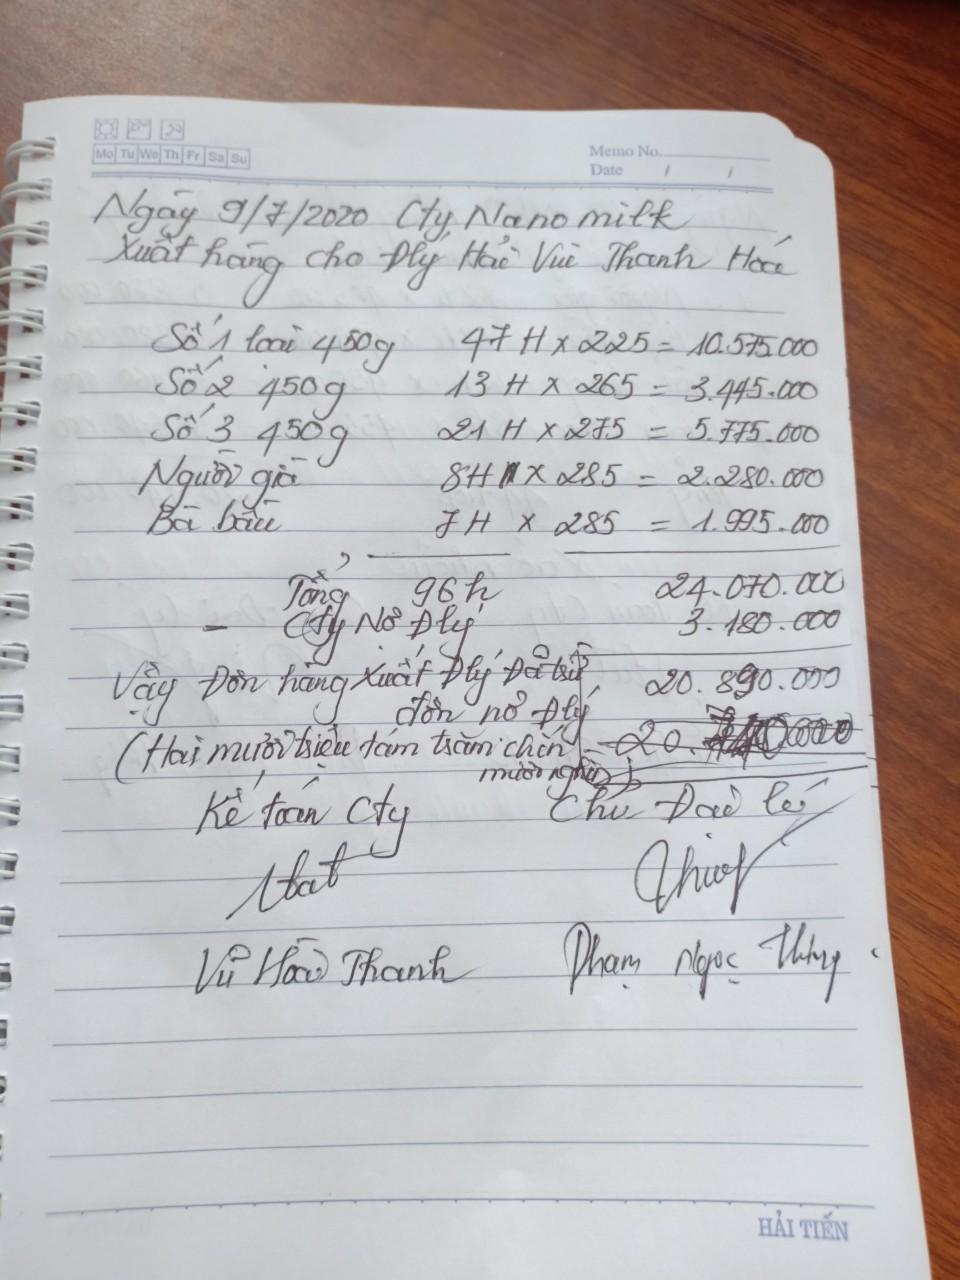 Mo Tu We Th Fr Sa Su
Memo No.
Date / /
Ngày 9/7/2020 Cty Nano milk
Xuất hàng cho Đlý Hải Vui Thanh Hoá
Số 1 loại 450g 47 H x 225 = 10.575.000
Số 2 450g 13 H x 265 = 3.445.000
Số 3 450g 21 H x 275 = 5.775.000
Người già 8H x 285 = 2.280.000
Bà bầu 7H x 285 = 1.995.000
Tổng 96 h 24.070.000
- Cty Nợ Đlý 3.180.000
Vậy Đơn hàng xuất Đlý Đã trừ 20.890.000
đơn nợ Đlý
(Hai mươi triệu tám trăm chín
mươi nghìn)
Kế toán Cty Chủ Đại lý
Vũ Hoài Thanh Phạm Ngọc
HẢI TIẾN